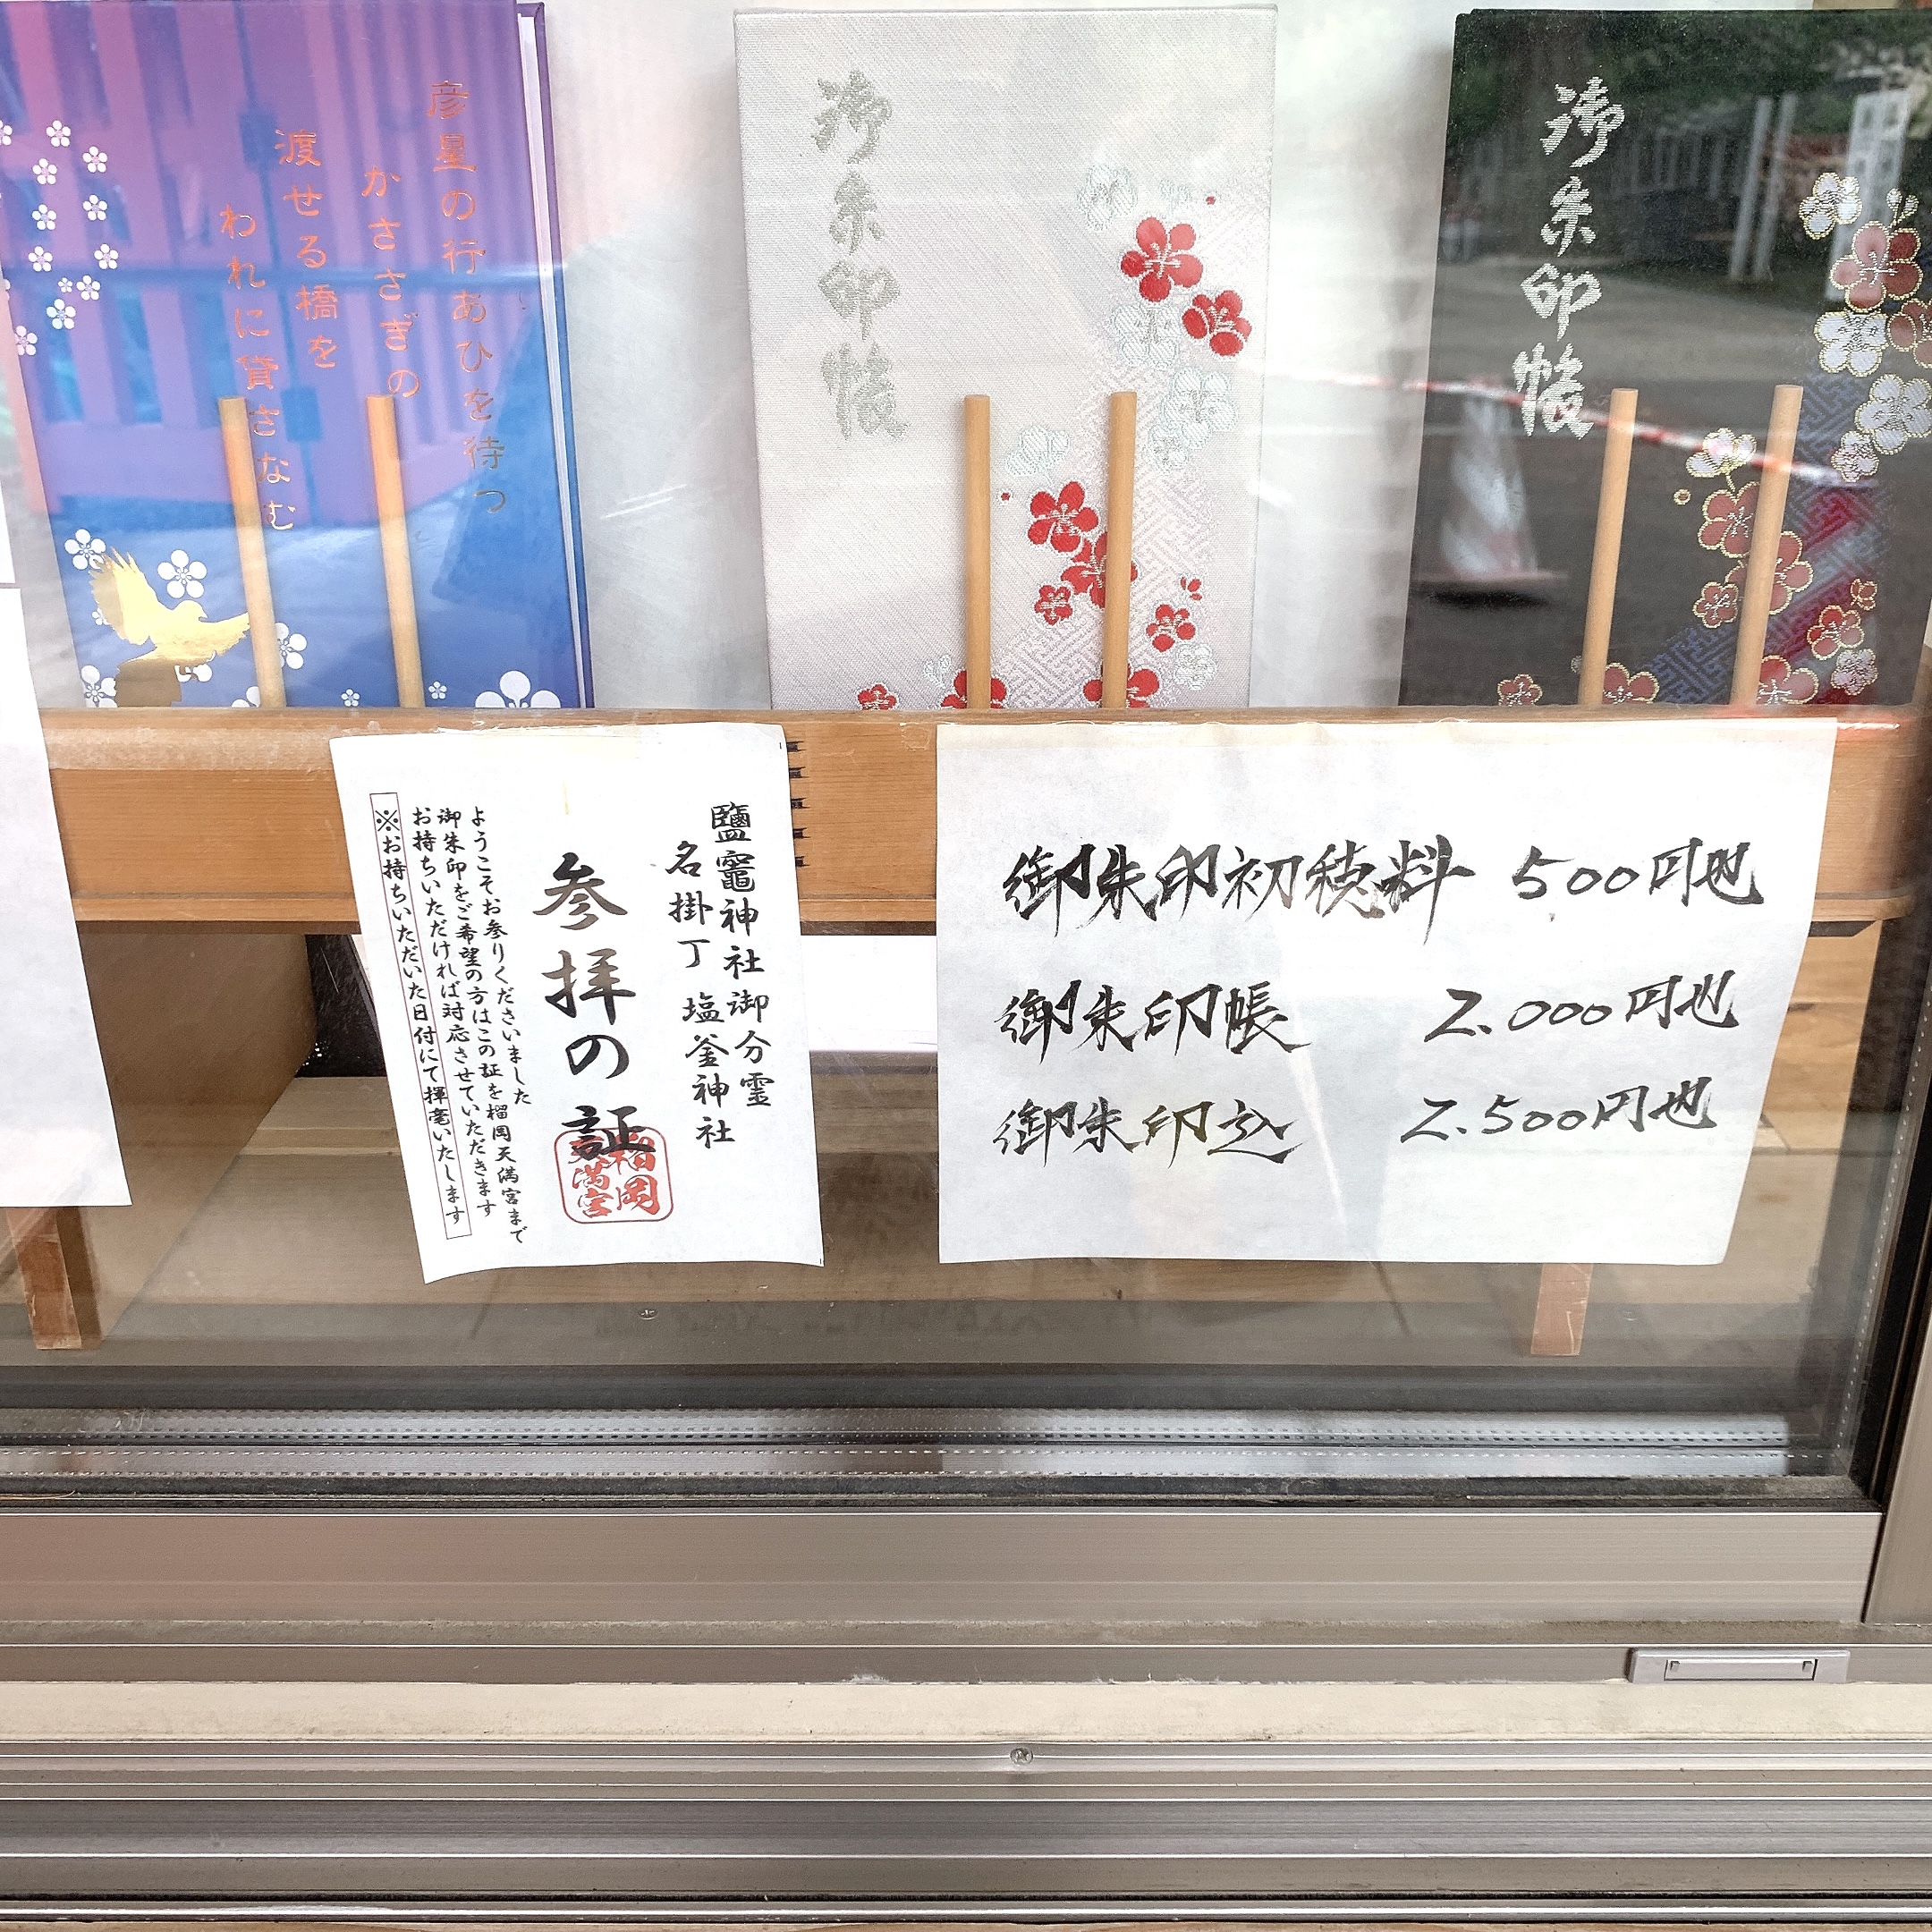 彦星の行あひを待つ
かささぎの
渡せる橋を
われに貸さなむ
御朱印帳
御朱印帳
鹽竈神社御分霊
名掛丁 塩釜神社
参拝の証
榴岡
天満宮
ようこそお参りくださいました
御朱印をご希望の方はこの証を榴岡天満宮まで
お持ちいただければ対応させていただきます
※お持ちいただいた日付にて揮毫いたします
御朱印初穂料 500円也
御朱印帳 2.000円也
御朱印込 2.500円也